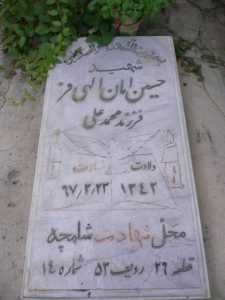 شهید
حسین زمان الهی فر
فرزند محمد علی
ولادت شهادت
۱۳۴۲ ۶۷/۲/۲۳
محل شهادت شلمچه
قطعه ۲۹ ردیف ۵۳ شماره ۱۴